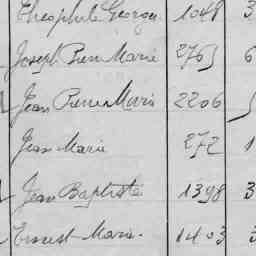 Théophile Georges 1048 3
Joseph Pierre Marie 2765 6
Jean Pierre Marie 2206
Jean Marie 272 1
Jean Baptiste 1398 3
Ernest Marie. 1403 3